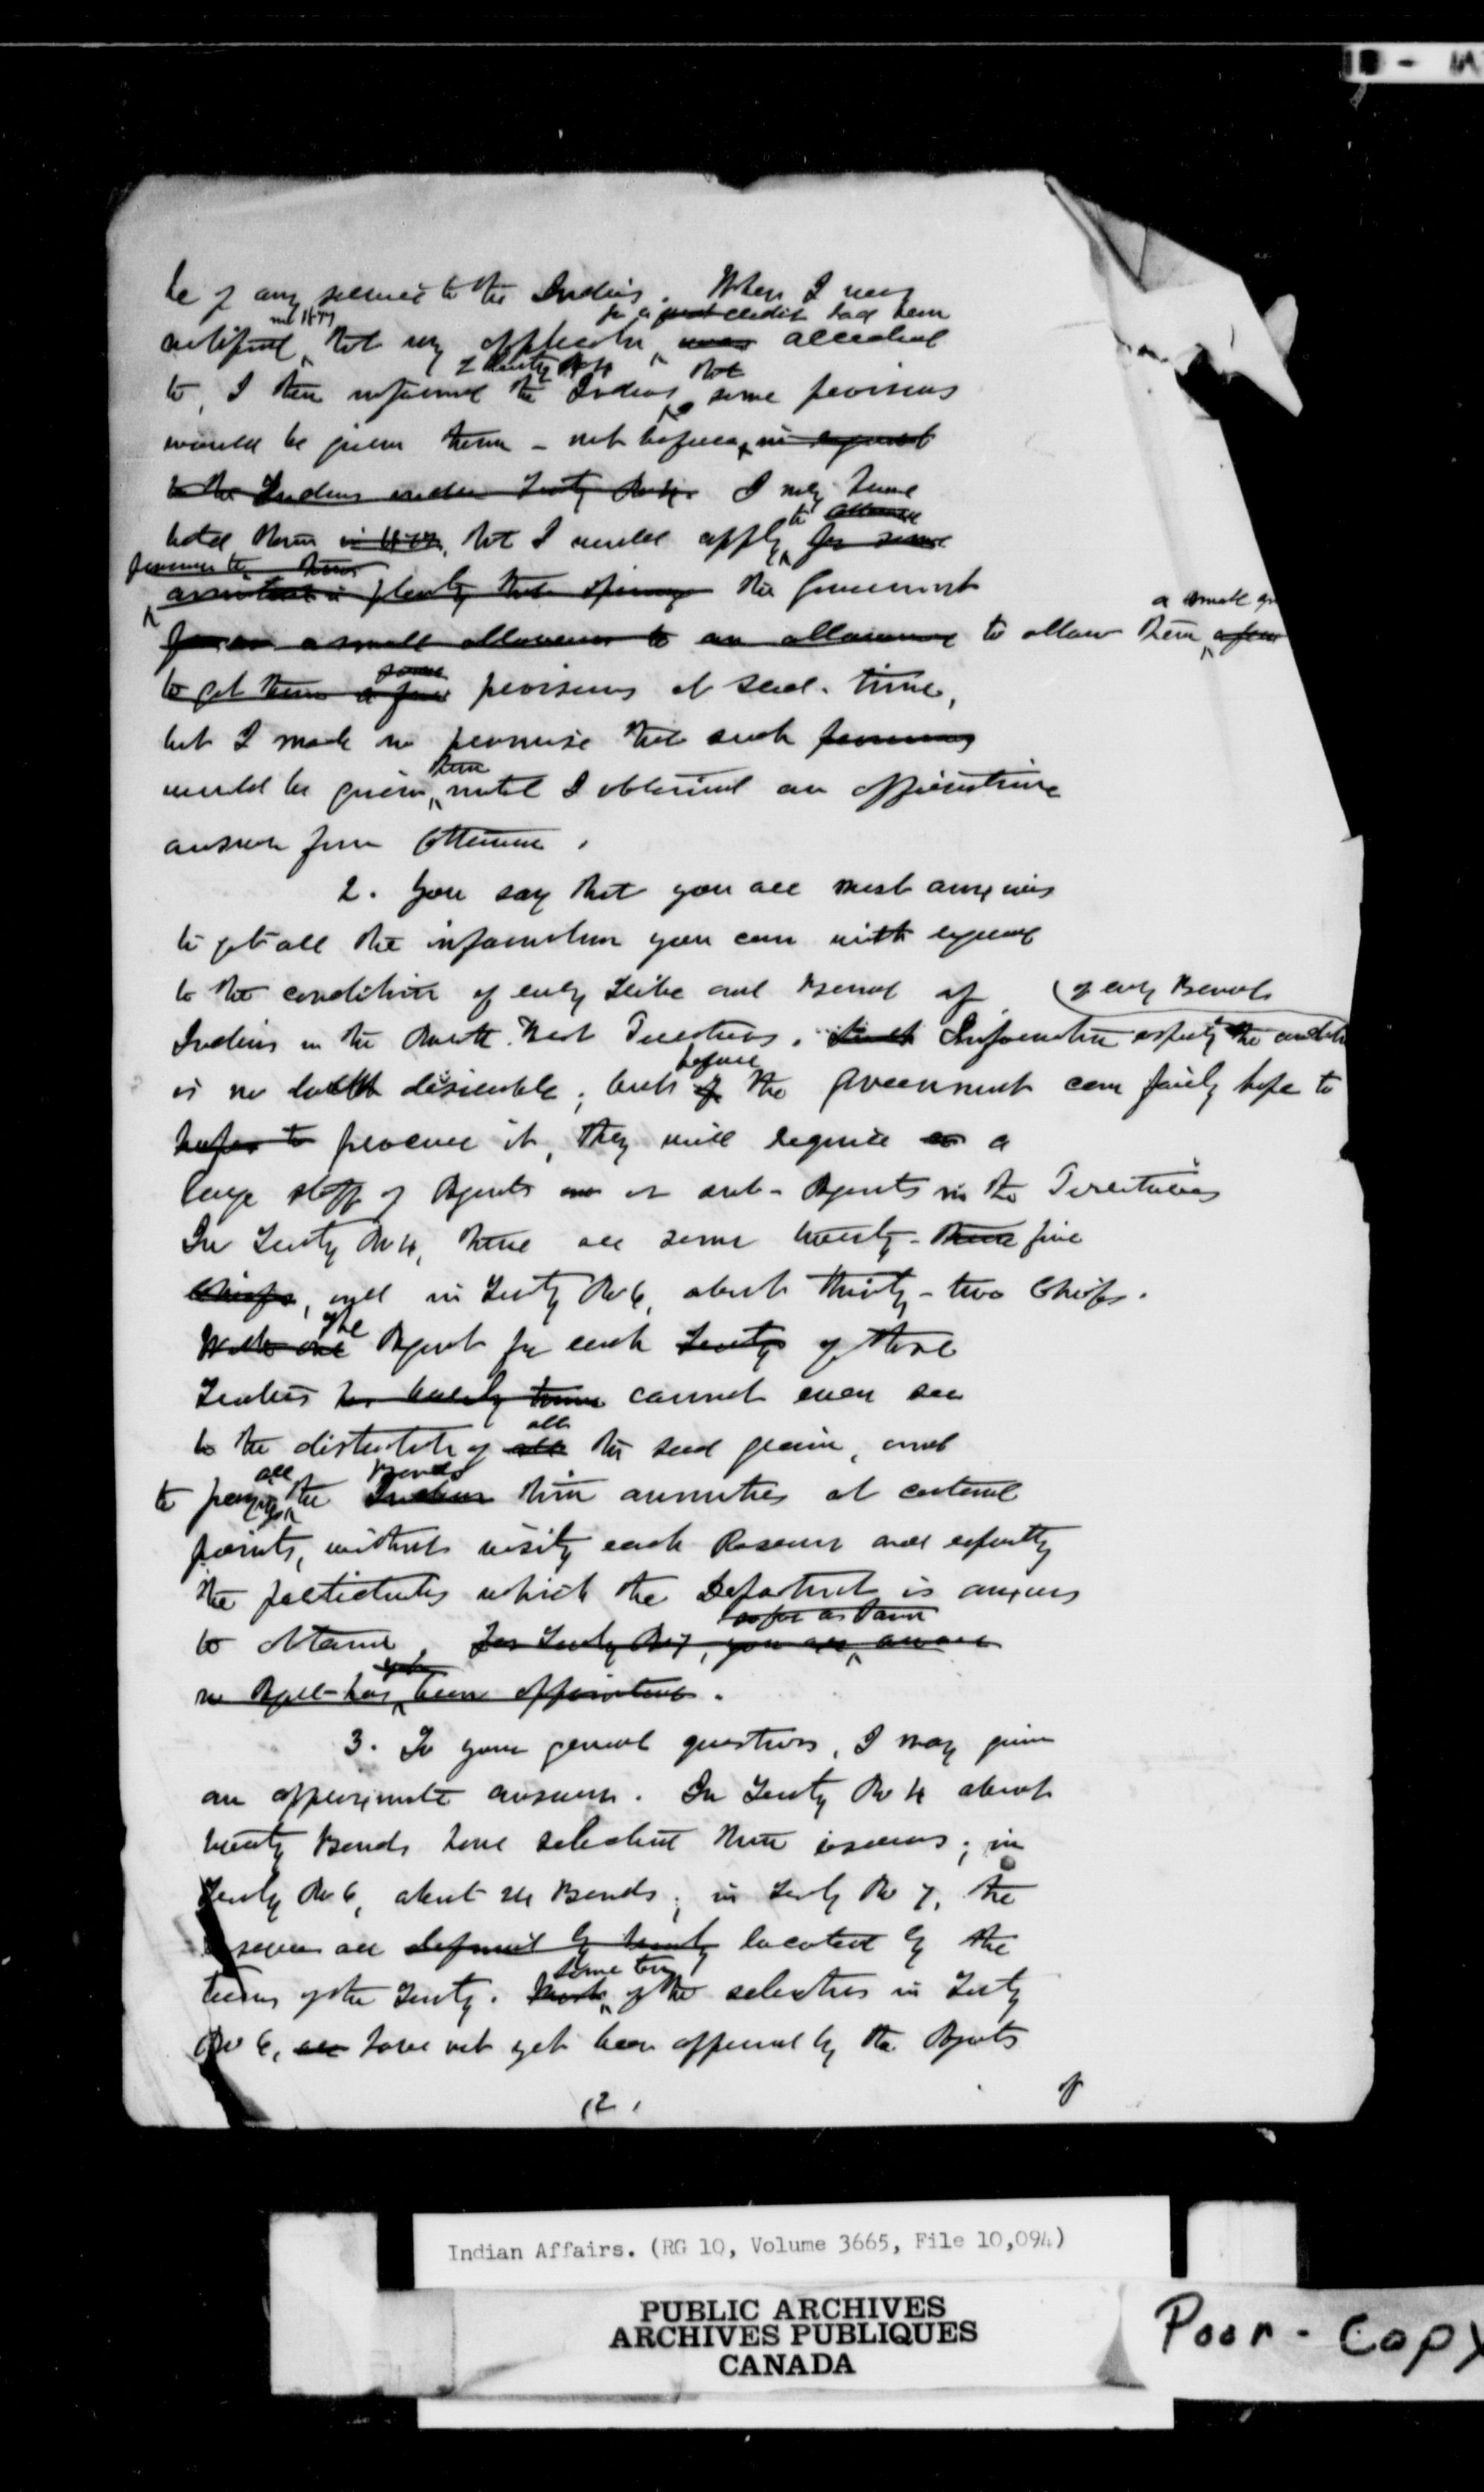 be of any service to the Indians. When I was
notified, that my application for a credit had been acceded
to, I then informed the Indians of Treaty No 4 that some provisions
would be given them - not before, in regard
to the Indians under Treaty No 4. I only have
told them in 1877, that I would apply to Ottawa for some
the Government
for a small allowance to an allowance to allow them a small
to get them a few some provisions at seed-time,
but I made no promise that such provisions
would be given them, until I obtained an approving
answer from Ottawa.
2. You say that you are most anxious
to get all the information you can with regard
to the condition of every Tribe and Band of
Indians in the North West Territories. Such Information respecting the condition of every Band
is no doubt desirable; but if before the Government can fairly hope to
hope to procure it, they will require a
large staff of Agents or sub-Agents in the Territories
In Treaty No 4, there are some twenty-three five
Chiefs, and in Treaty No 6, about thirty-two Chiefs.
With one The Agent for each Treaty of these
Treaties has barely time cannot even see
to the distribution of all the seed grain, and
to paying all the Indians Bands their annuities at central
points, without visiting each Reserve and reporting
the particulars which the Department is anxious
to obtain. For Treaty No 7, you are, so far as I am aware
no Agent has yet been appointed.
3. To your general questions, I may give
an approximate answer. In Treaty No 4 about
twenty Bands have selected their reserves; in
Treaty No 6, about Bands; in Treaty No 7, the
reserves are defined by treaty located by the
terms of the Treaty. Most some ten of the selections in Treaty
No 6, are have not yet been approved by the Agents
12.
of
Indian Affairs. (RG 10, Volume 3665, File 10,094)
PUBLIC ARCHIVES
ARCHIVES PUBLIQUES
CANADA
Poor - Copy